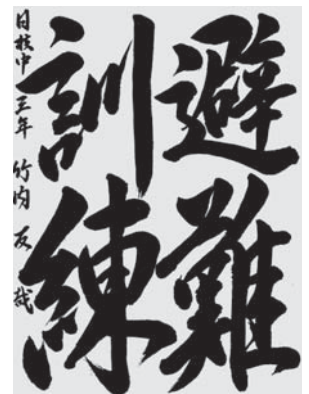 避難
訓練
日枝中 三年 竹内 友哉